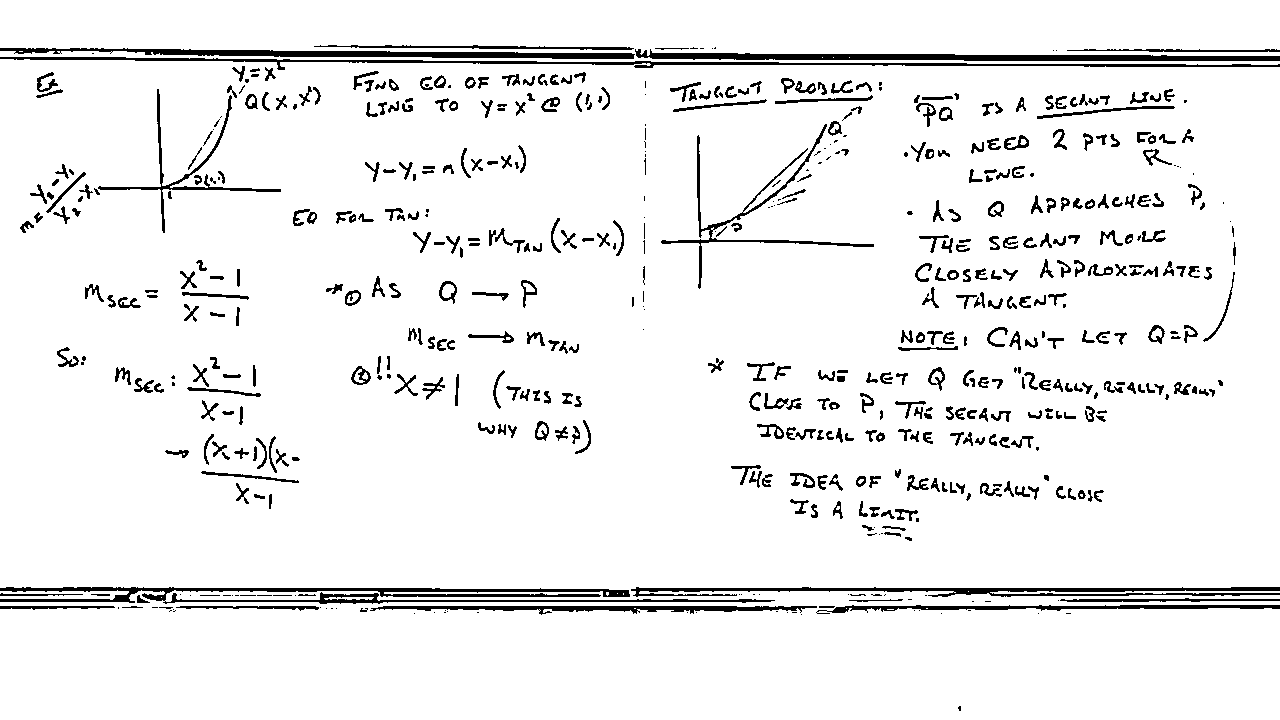 Ex
y = x²
Q(x, x²)
P(1,1)
1
m = y₂-y₁ / x₂-x₁
m SEC = x²-1 / x-1
So:
m SEC: x²-1 / x-1
→ (x+1)(x- / x-1
FIND EQ. OF TANGENT
LINE TO y = x² @ (1,1)
y-y₁ = m(x-x₁)
EQ FOR TAN:
y-y₁ = m TAN (x-x₁)
* ① AS Q → P
m SEC → m TAN
② !! x ≠ 1 (THIS IS
WHY Q ≠ P)
TANGENT PROBLEM:
Q
P
PQ IS A SECANT LINE.
· YOU NEED 2 PTS FOR A
LINE.
· AS Q APPROACHES P,
THE SECANT MORE
CLOSELY APPROXIMATES
A TANGENT.
NOTE: CAN'T LET Q=P
* IF WE LET Q GET "REALLY, REALLY, REALLY"
CLOSE TO P, THE SECANT WILL BE
IDENTICAL TO THE TANGENT.
THE IDEA OF "REALLY, REALLY" CLOSE
IS A LIMIT.